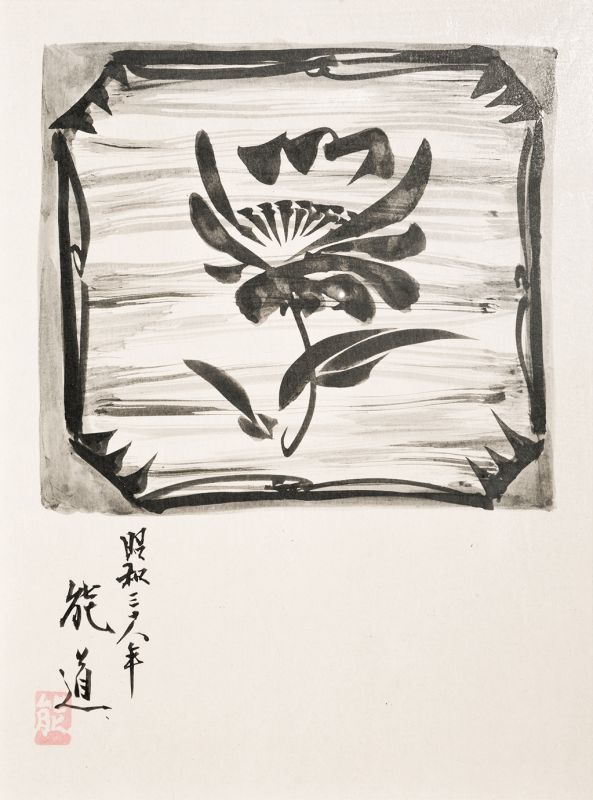 昭和三十八年
能道
能